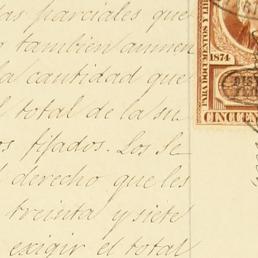 as parciales que
o tambien aumen
la cantidad que
l total de la su
os fijados. Los Se
l derecho que les
treinta y siete
exigir el total
1874
PARA DOCUMENTOS Y LIB
CINCUEN